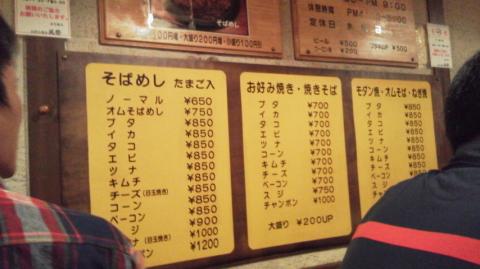 そばめし
100円増・大盛り200円増・小盛り100円引
定休日
ビール ¥500
そばめし たまご入
ノーマル ¥650
オムそばめし ¥750
ブタ ¥850
イカ ¥850
タコ ¥850
エビ ¥850
ツナ ¥850
キムチ ¥850
チーズ(目玉焼き) ¥850
コーン ¥850
ベーコン ¥900
ジ ¥1000
ナ(目玉焼き) ¥1000
ャンポン ¥1200
お好み焼き・焼きそば
ブタ ¥700
イカ ¥700
タコ ¥700
エビ ¥700
ツナ ¥700
コーン ¥700
キムチ ¥700
チーズ ¥700
ベーコン ¥750
スジ ¥750
チャンポン ¥1000
大盛り ¥200UP
モダン焼・オムそば・ねぎ焼
ブタ ¥850
イカ ¥850
タコ ¥850
エビ ¥850
ツナ
コーン
キムチ
チーズ
ベーコン
スジ
チャンポン